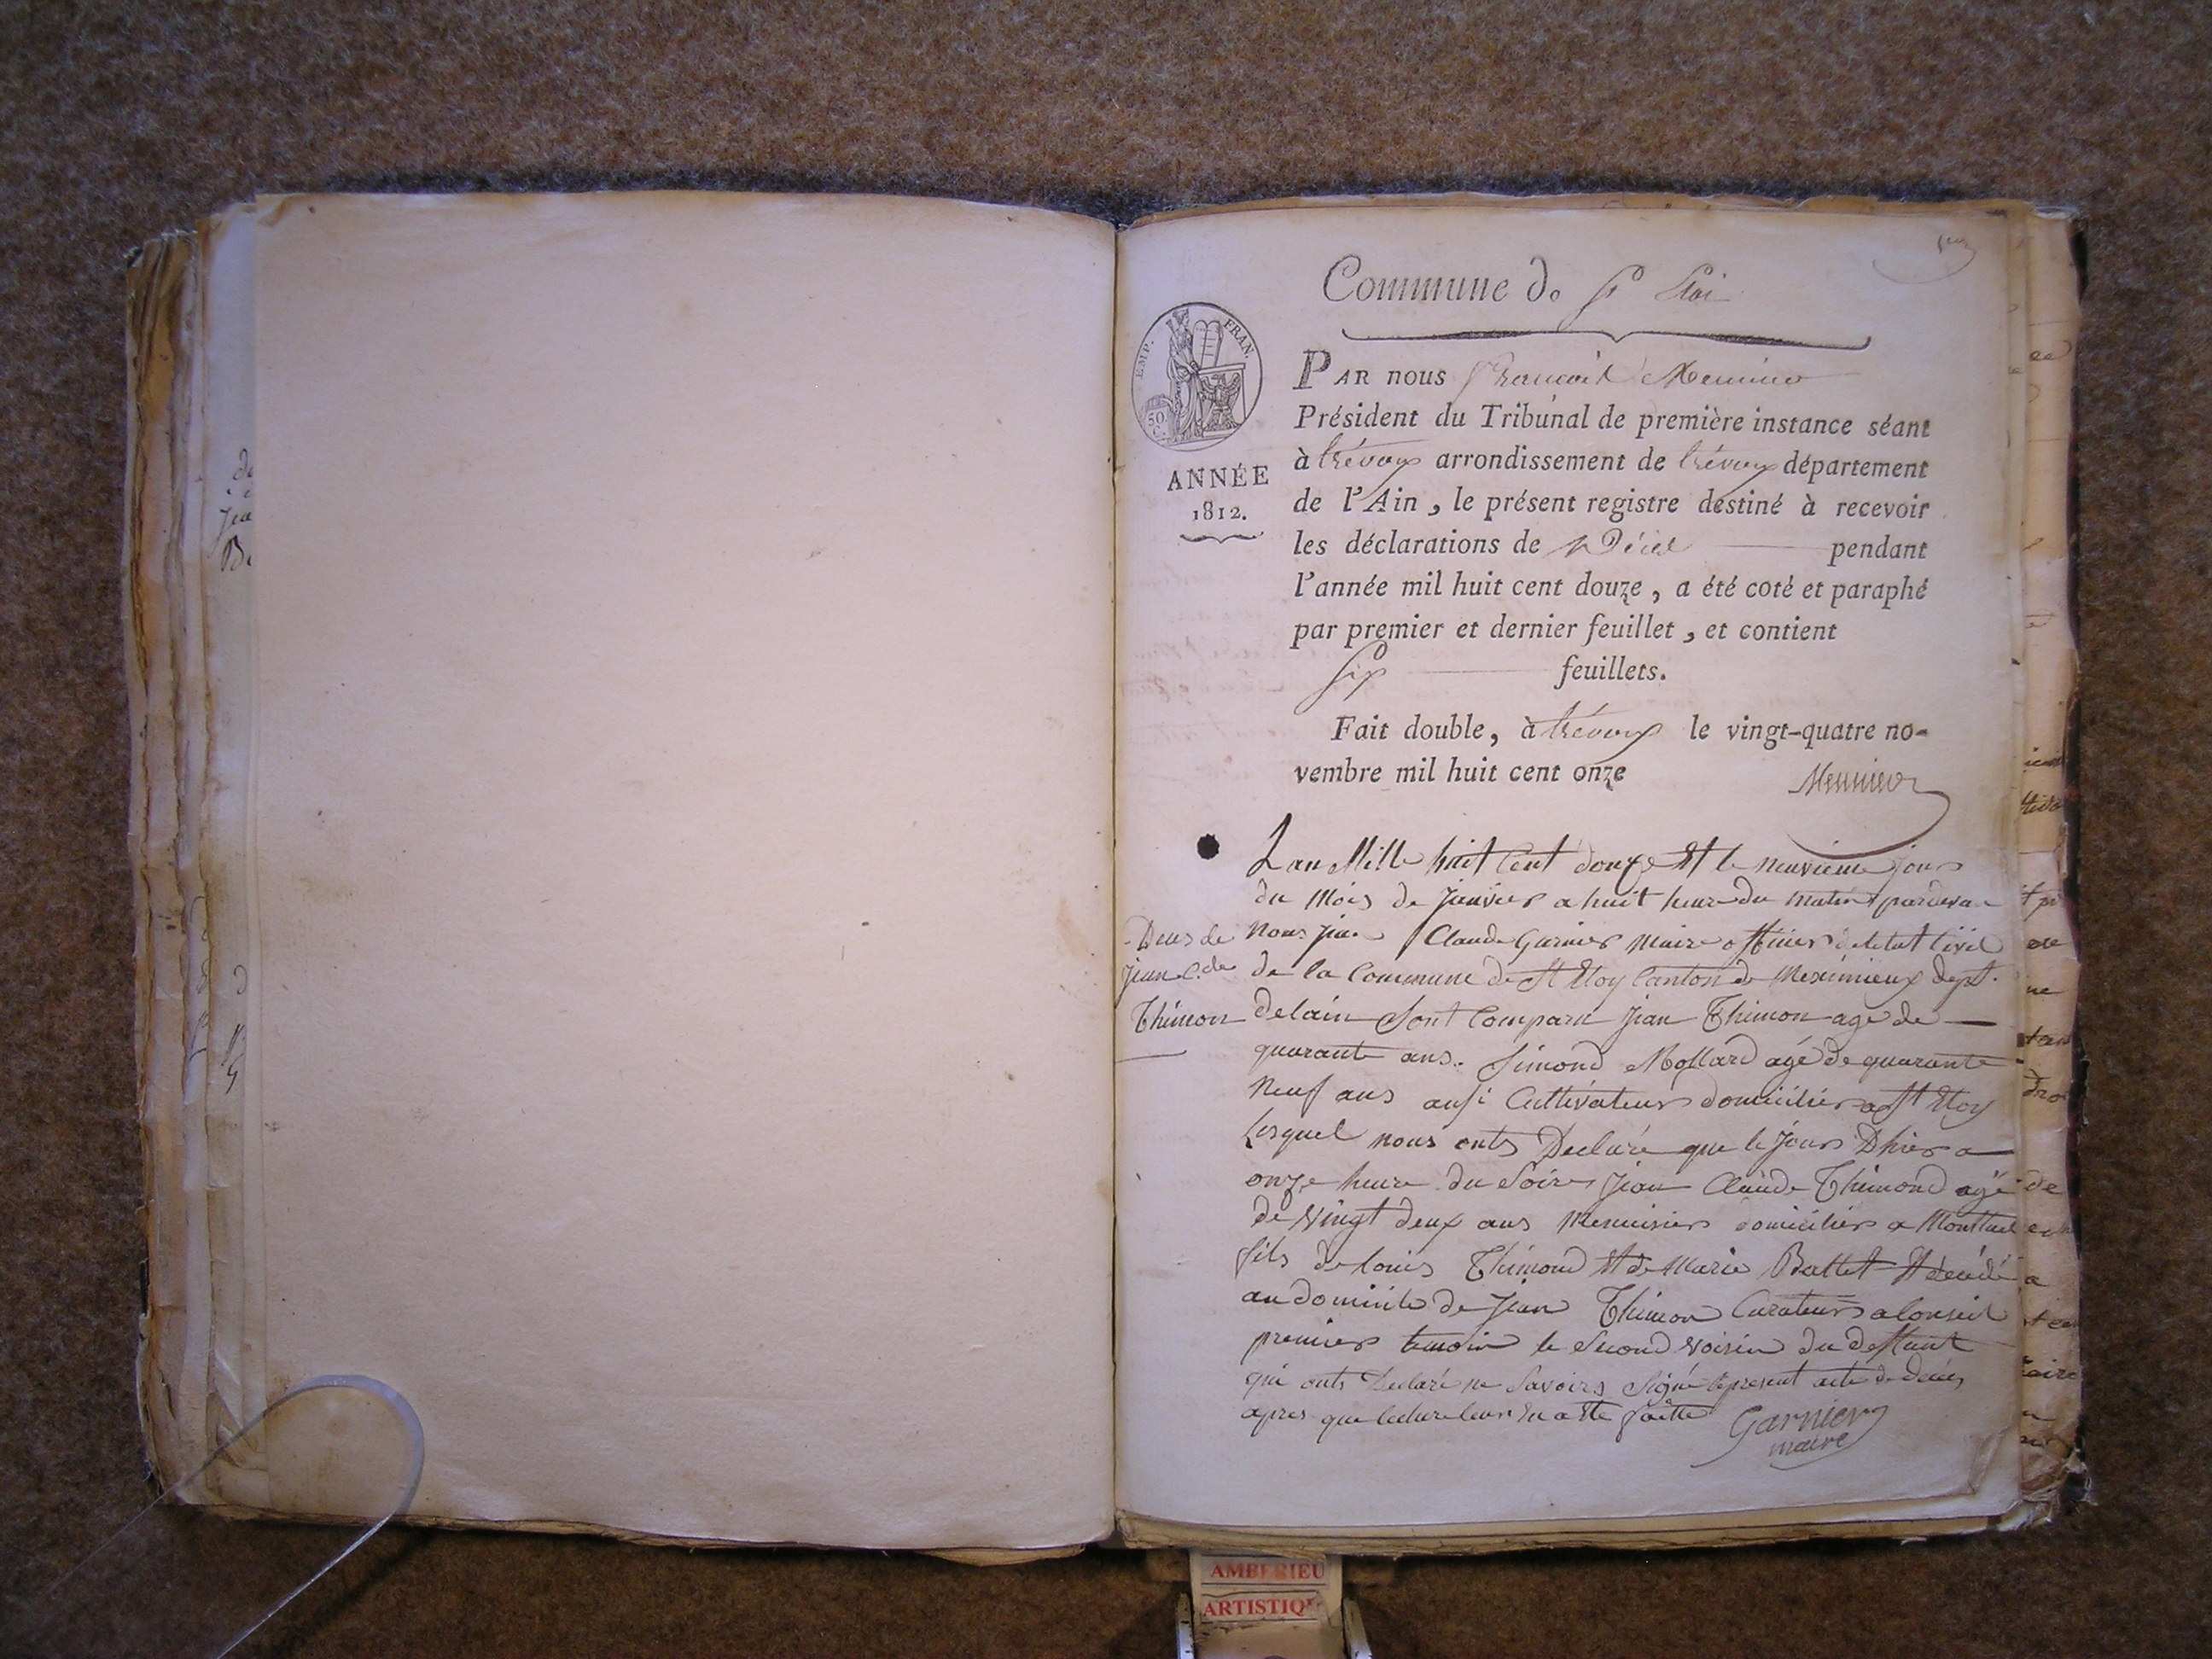 Commune de St Eloi
EMP. FRAN.
50 C.
PAR nous François Meunier
Président du Tribunal de première instance séant
à trévoux arrondissement de trévoux département
ANNÉE
1812.
de l'Ain, le présent registre destiné à recevoir
les déclarations de Décès pendant
l'année mil huit cent douze, a été coté et paraphé
par premier et dernier feuillet, et contient
six feuillets.
Fait double, à trévoux le vingt-quatre no-
vembre mil huit cent onze
Meunier
Lan Mille huit Cent douze Et le neuvieme jours
du Mois de Janvier a huit heure du matin pardevan
Deces de
Jean C.de
Thimon
nous Jean Claude Garnier Maire officier de letat Civil
de la Commune de St Eloy Canton de Meximieux dept.
delain Sont Comparu Jean Thimon agé de
quarante ans. Simond Mollard agé de quarante
Neuf ans ausi Cultivateurs domicilier a St Eloy
Lesquel nous onts Declaré que le Jours Dhier a
onze heure du Soire Jean Claude Thimond agé
de vingt deux ans Menuisier domicilier a Montluel
fils de louis Thimond Et de Marie Battet Et décédé
au domicile de Jean Thimon Curateur a Conseil
premier temoin le Second voisin du deffunt
qui onts Declaré ne Savoirs Signé le present acte de deces
apres que lecture leur En a Eté faitte
Garnier
maire
AMBERIEU
ARTISTIQ